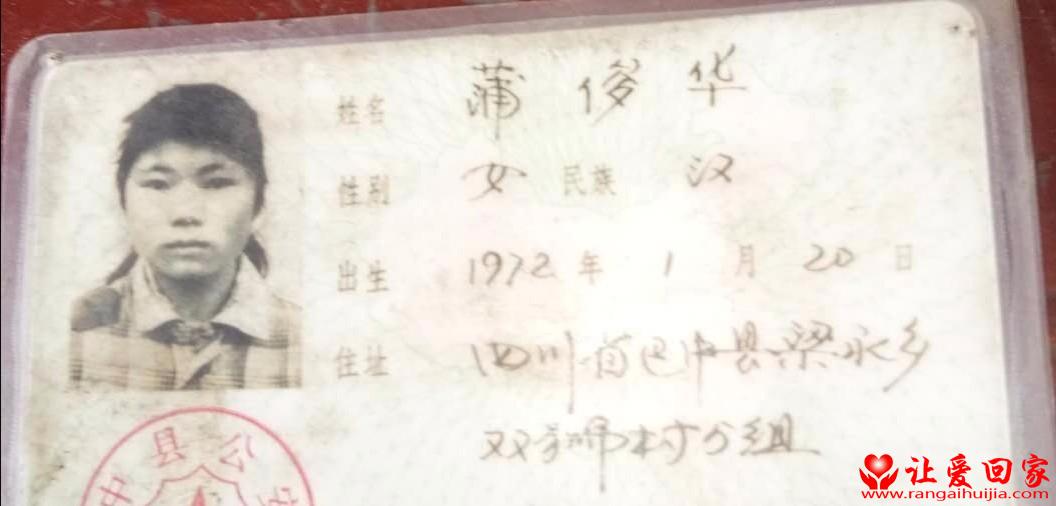 姓名 蒲俊华
性别 女 民族 汉
出生 1972 年 1 月 20 日
住址 四川省巴中县梁永乡
双狮村分组
中县公安
让爱回家
www.rangaihuijia.com